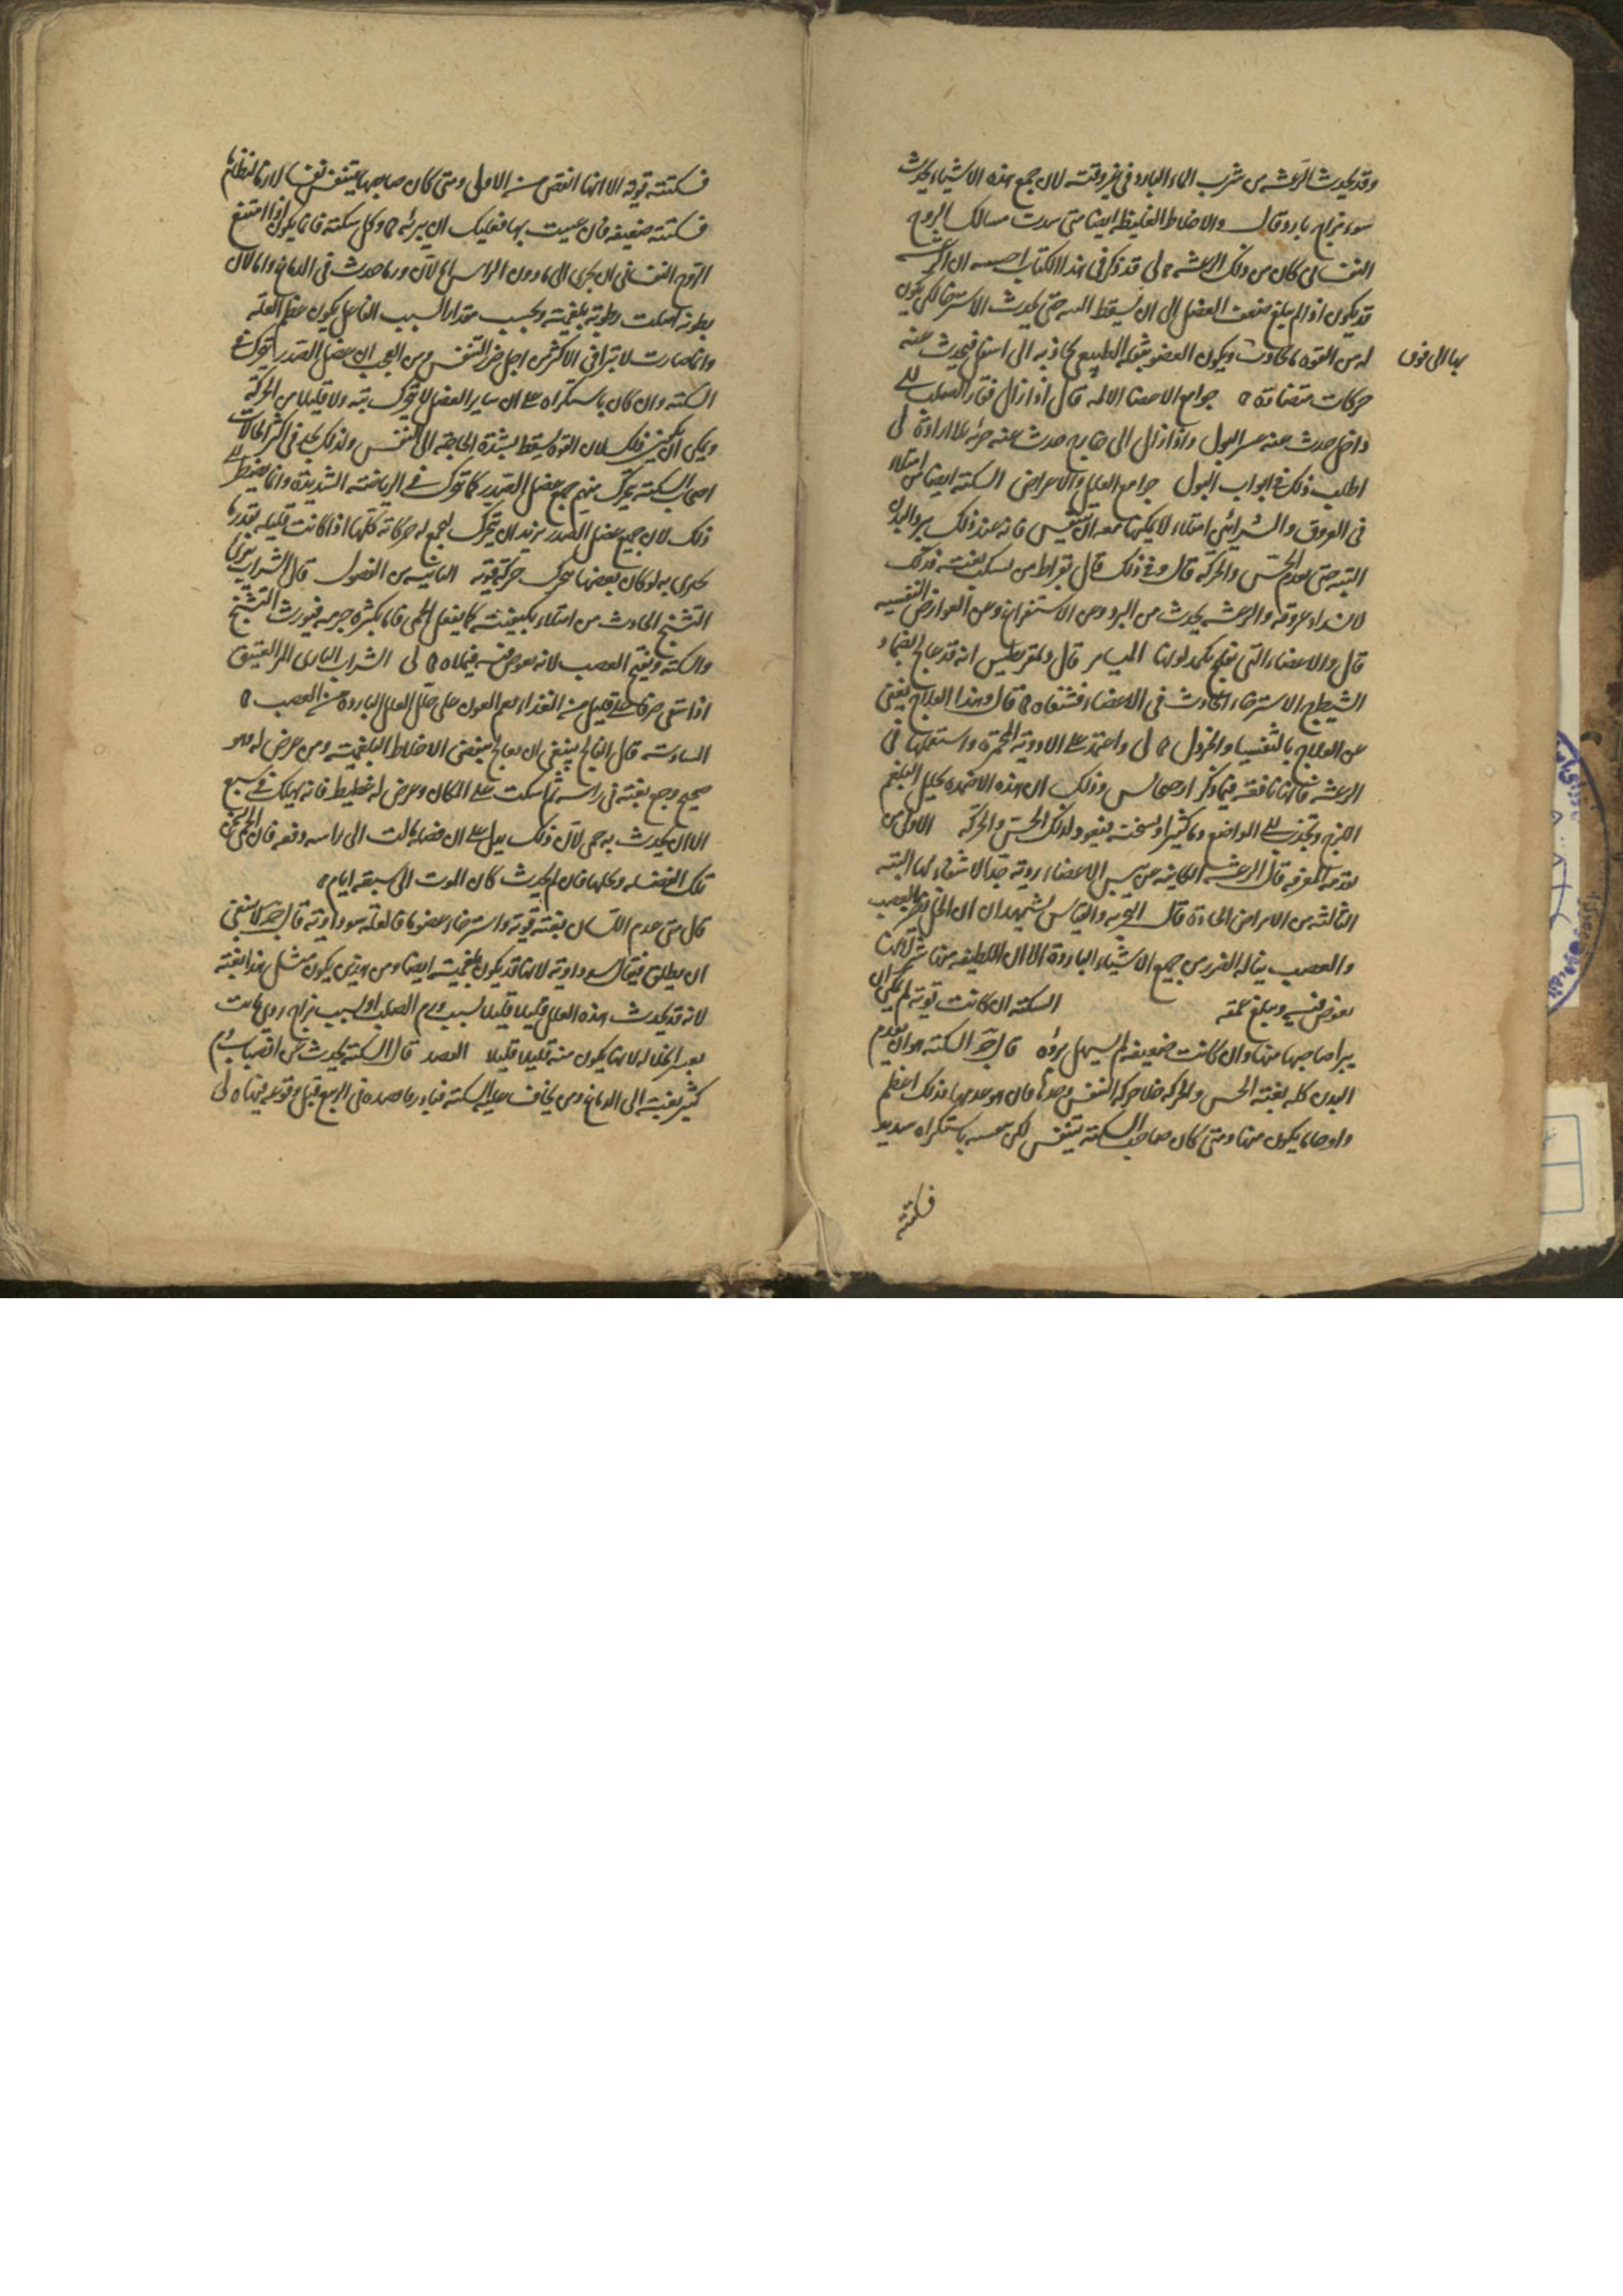 وقد يحدث الرعشة من شرب الماء البارد في غير وقته لان جميع هذه الاشياء يحدث
سوء مزاج بارد وقال والاخلاط الغليظة ايضا متى سدت مسالك الروح
النفساني كان من ذلك الرعشة لى قد ذكر في هذا الكتاب ان الرعشة
قد يكون اذا لم يبلغ ضعف العضل الى ان يسقط البتة حتى يحدث الاسترخا لكن يكون
له من القوة ما يحاوث ويكون العضو بثقله الطبيعي يجاذبه الى اسفل فيحدث عنه
بها الى فوق
حركات متضادة جوامع الاعضا الالمة قال اذا زال فقار الصلب الى
داخل حدث عنه عسر البول واذا زال الى خارج حدث عنه خروجه بلا ارادة لى
اطلب ذلك في ابواب البول جوامع العلل والاعراض السكتة ايضا من امتلاء
في العروق والشرائين امتلاء لا يمكنها معه ان تتنفس فانه عند ذلك يبرد البدن
البتة حتى يعدم الحس والحركة قال وفي ذلك قال بقراط من يسكت بغتة فذلك
لانسداد عروقه والرعشة يحدث من البرد ومن الاستفراغ ومن العوارض النفسية
قال والاعضاء التي تفلج تكمد لونها الميامر قال ديمقريطيس انه قد عالج بضماد
الشيطرج الاسترخاء الحادث في الاعضاء فشفاه قال وهذا العلاج يغني
عن العلاج بالثفسيا والخردل لى واعتمد على الادوية المحمرة واستعملها في
الرعشة فانها نافعة فيما ذكر ارجيجانس وذلك ان هذه الاضمدة يحلل البلغم
اللزج وتجذب الى المواضع دما كثيرا وسخنه فيعود لذلك الحس والحركة الاولى من
تقدمة المعرفة قال الرعشة الكاينة عن يبس الاعضاء ردية جدا لا شفاء لها البتة
الثالثة من الامراض الحادة قال التجربة والقياس يشهدان ان الخل يضر بالعصب
والعصب يناله الضرر من جميع الاشياء الباردة الا ان اللطيفة منها شر لانها
تغوص فيه ويبلغ عمقه السكتة ان كانت قوية لم يمكن ان
يبرا صاحبها منها وان كانت ضعيفة لم يسهل برؤه قال ج السكتة هو ان يعدم
البدن كله بغتة الحس والحركة خلا حركة التنفس وحدها فان هو عدمها فذلك اعظم
واوحى ما يكون منها ومتى كان صاحب السكتة يتنفس لكن تنفسه باستكراه شديد
فسكتته
فسكتته قوية الا انها انقص من الاولى ومتى كان صاحبها يتنفس تنفسا لازما لنظام ما
فسكتته ضعيفة فان عنيت بها فعليك ان يبرئه وكل سكتة فانما يكون اذا امتنع
الروح النفساني ان يجري الى ما دون الراس اما لان ورما حدث في الدماغ واما لان
بطونه امتلت رطوبة بلغمية وبحسب مقدار السبب الفاعل يكون عظم العلة
وانما صارت لا تبرا في الاكثر من اجل ضرر التنفس ومن العجب ان عضل الصدر يتحرك في
السكتة وان كان باستكراه على ان ساير العضل لا يتحرك بتة ولا قليلا من الحركة
ويمكن ان يكون ذلك لان القوة يسقط لشدة الحاجة الى التنفس ولذلك يجد في اكثر الحالات
اصحاب السكتة يتحرك منهم جميع عضل الصدر كما يتحرك في الرياضة الشديدة وانما يضطر الى
ذلك لان جميع عضل الصدر يريد ان يتحرك ليجمع له حركاته كلها اذا كانت قليلة بقدر ما
يجري به لو كان بعضها يتحرك حركة قوية الثانية من الفصول قال الشراب يبري
التشنج الحادث من امتلاء بكيفيته كما يفعل الحمى فاما بكثرة جرمه فيورث التشنج
والسكتة ويفتح العصب لانه يغوص فيه فيملاه لى الشراب الناري المر العتيق
اذا سقي صرفا على قليل من الغذاء نعم العون على حل العلل الباردة من العصب
السادسة قال الفالج ينبغي ان يعالج بنفض الاخلاط البلغمية ومن عرض له وهو
صحيح وجع بغتة في راسه ثم اسكت على المكان وعرض له غطيط فانه يهلك في سبع
الا ان يحدث به حمى لان ذلك يدل على ان فضلة مالت الى راسه دفعة فان الحمى تسخن
تلك الفضلة وتحلها فان لم يحدث كان الموت الى سبعة ايام
قال متى عدم اللسان بغتة قوته واسترخاء عضو ما فالعلة سوداوية قال ج لا ينبغي
ان يطلق فيقال سوداوية لانها قد يكون بلغمية ايضا ومن هذين يكون مثل هذا بغتة
لانه قد يحدث هذه العلل قليلا قليلا بسبب ورم الصلب او لسبب مزاج ردي
بعد انحلاله لانها يكون منه قليلا قليلا الفصد قال السكتة يحدث عن انصباب دم
كثير بغتة الى الدماغ ومن يخاف عليه السكتة فبادر فافصده في الربيع قبل وقوعه فيها لى